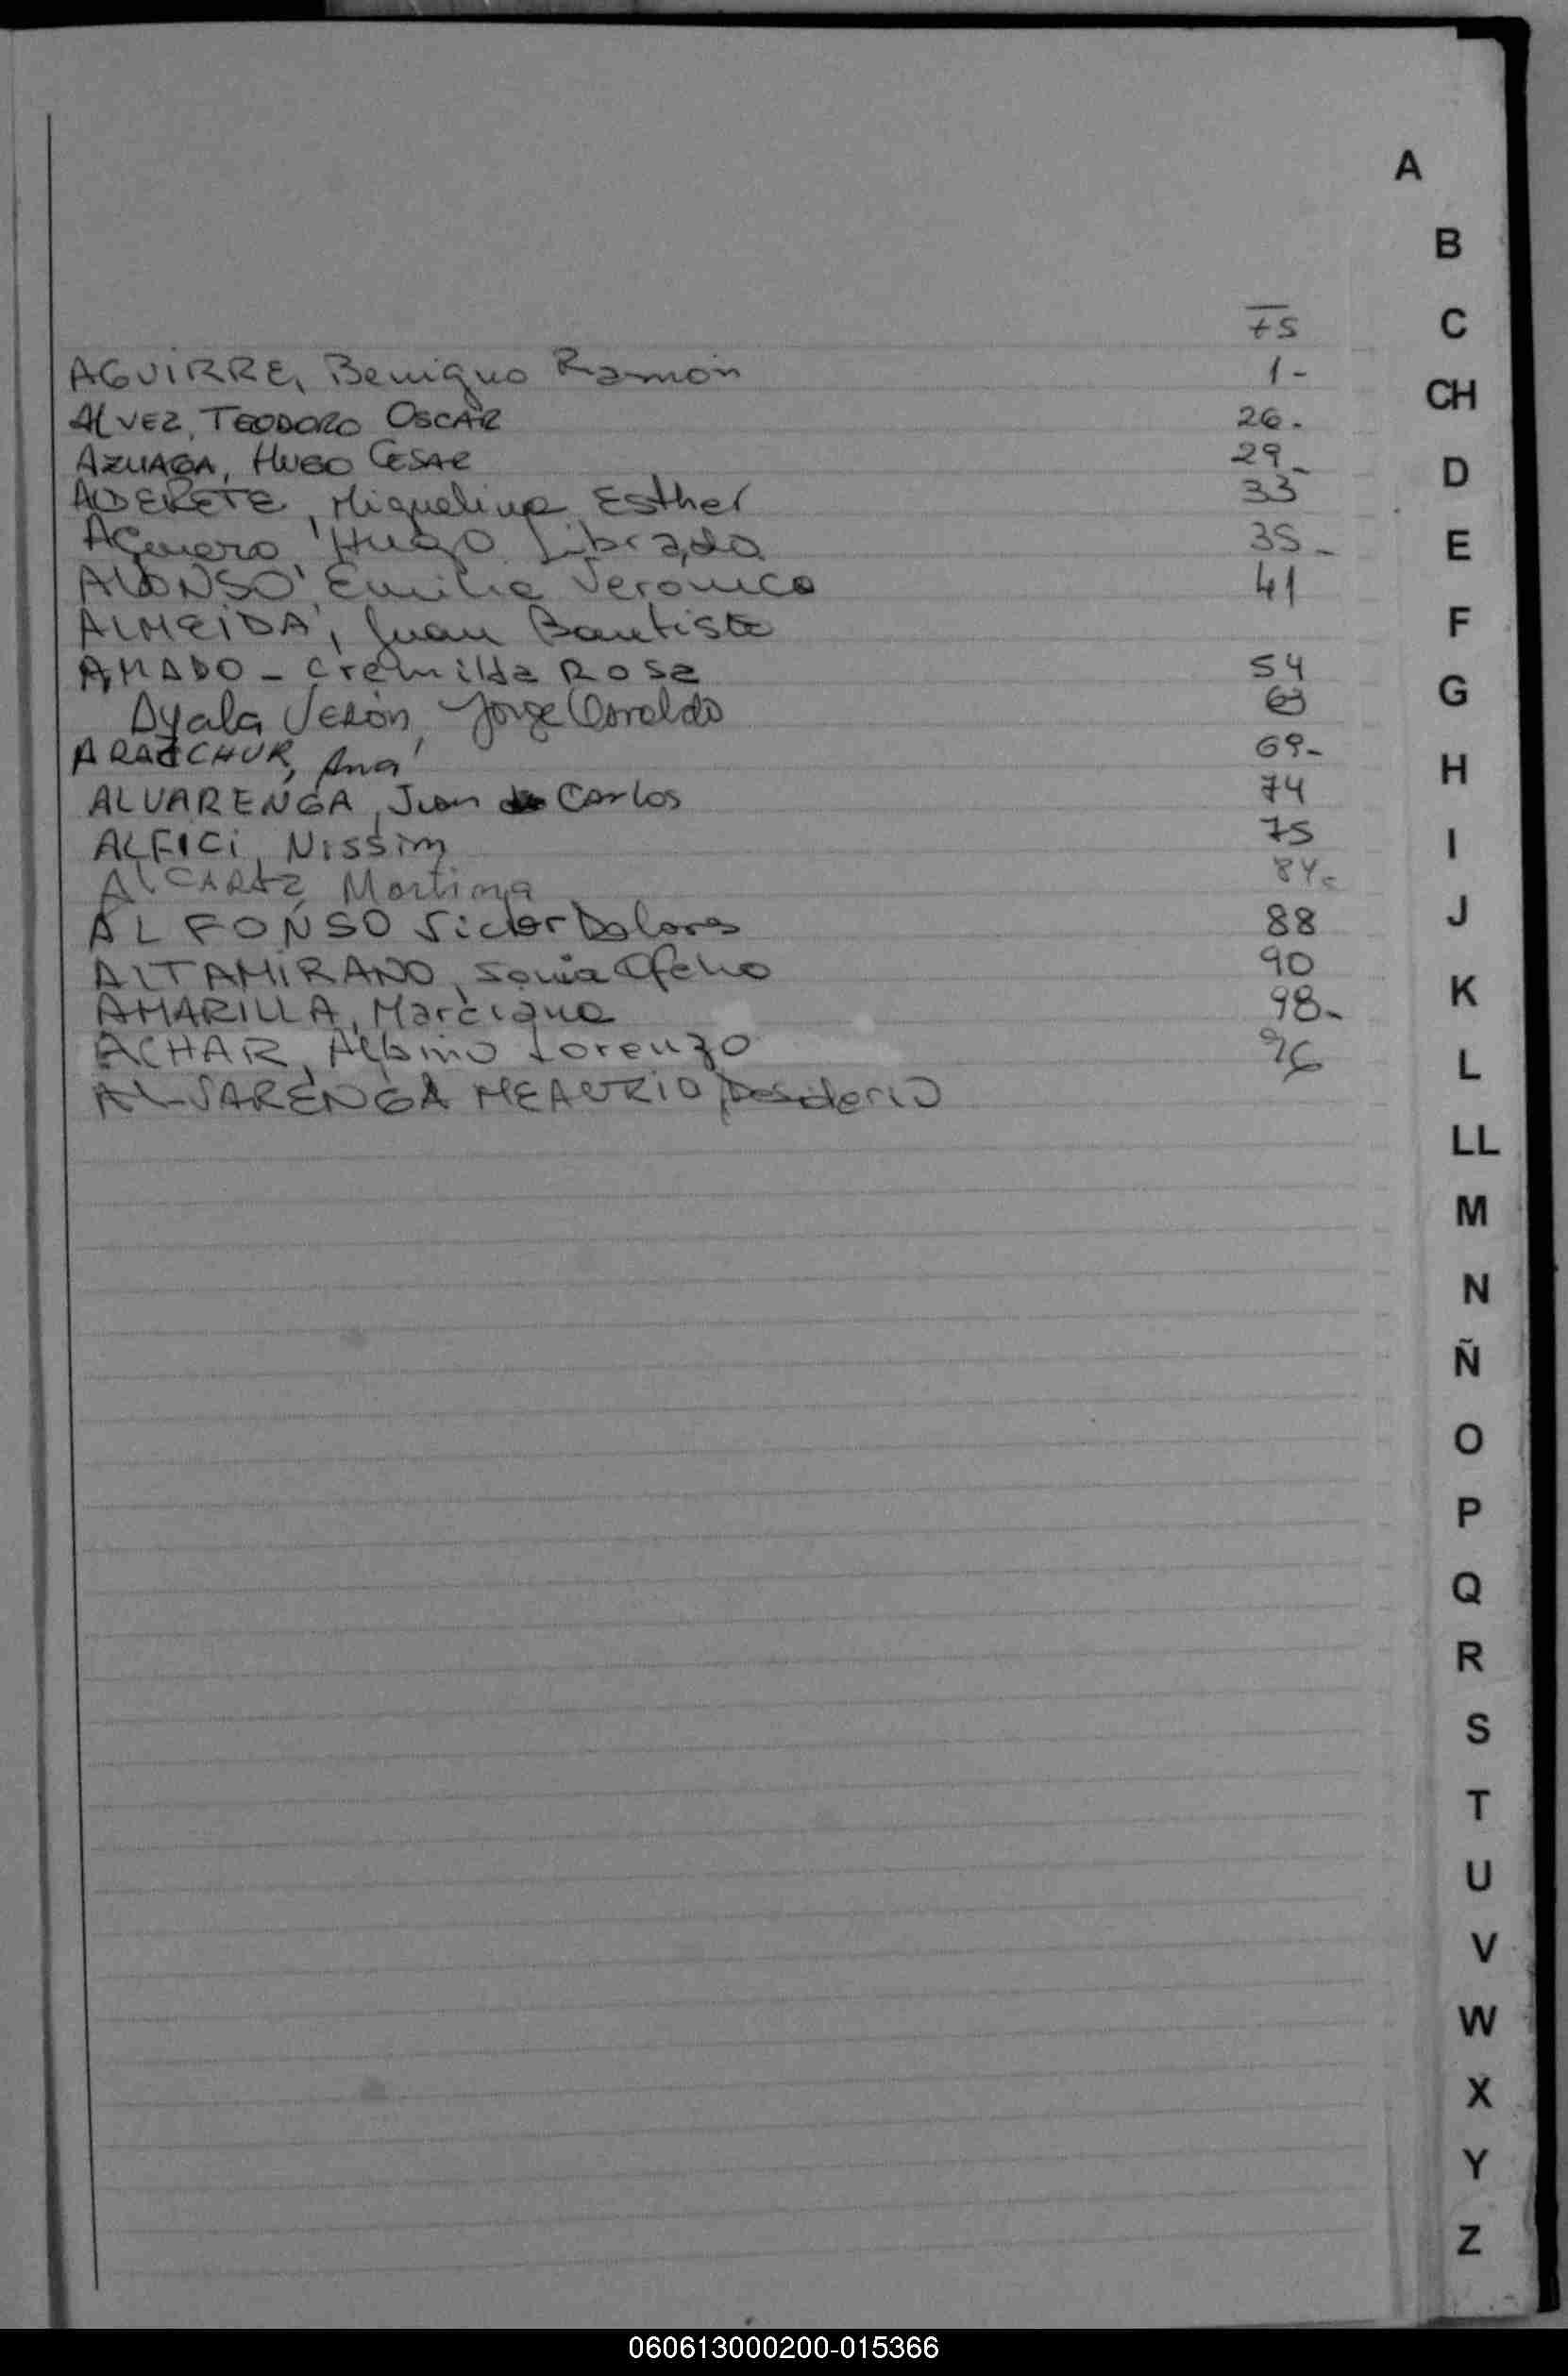 A
B
C
CH
D
E
F
G
H
I
J
K
L
LL
M
N
Ñ
O
P
Q
R
S
T
U
V
W
X
Y
Z
AGUIRRE, Benigno Ramón 1-
ALVEZ, TEODORO OSCAR 26.
AZUAGA, HUGO CESAR 29_
ALDERETE, Miguelina Esther 33
AGuero, Hugo Librado 35_
ALONSO, Emilia Veronica 41
ALMEIDA, Juan Bautista
AMADO - Cremilda Rosa 54
Ayala Verón, Jorge Osvaldo 63
69-
ALVARENGA, Juan Carlos 74
ALFICI, Nissim 75
ALCARAZ, Martina 84
ALFONSO Victor Dolores 88
ALTAMIRANO, Sonia 90
AMARILLA, Marciana 98-
ACHAR, Albino Lorenzo 96
ALVARENGA MEAURIO, Desiderio
060613000200-015366